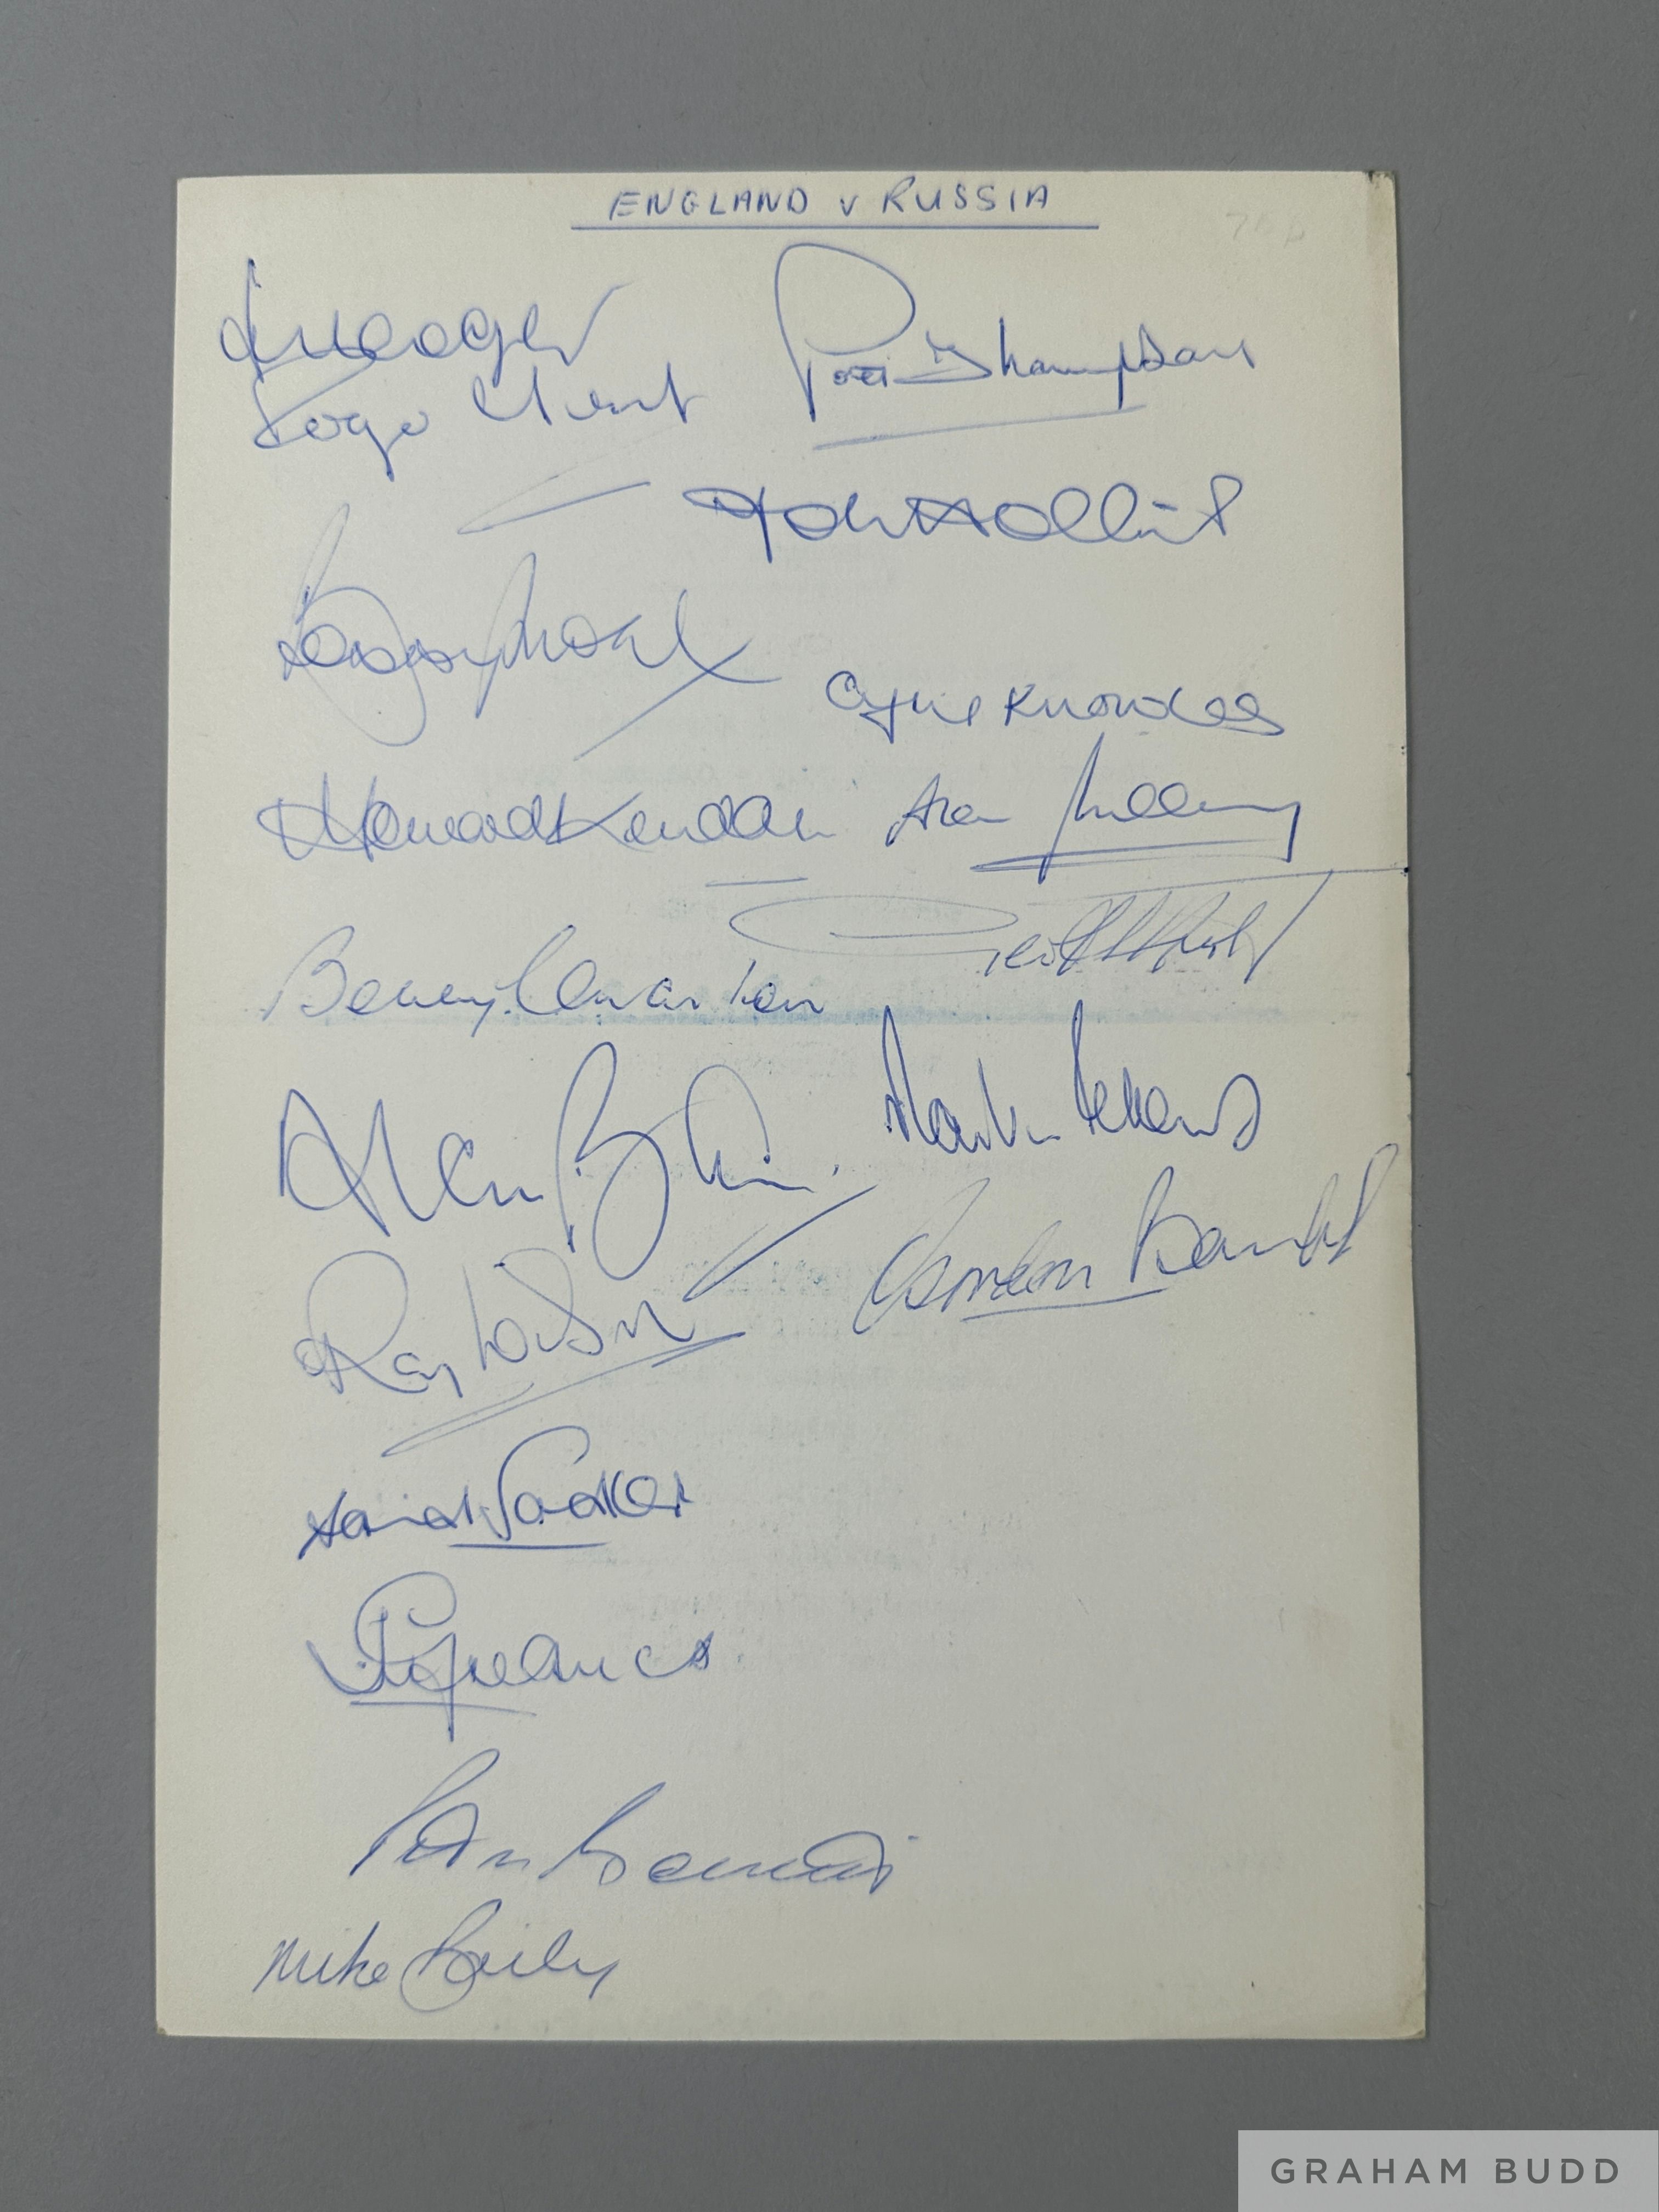 ENGLAND v RUSSIA
Roger Hunt
Peter Thompson
John Hollins
Bobby Moore
Cyril Knowles
Howard Kendall
Alan Mullery
Geoff Hurst
Alan Ball
Martin Peters
Ray Wilson
Gordon Banks
David Sadler
Peter Bonetti
Mike Bailey
GRAHAM BUDD